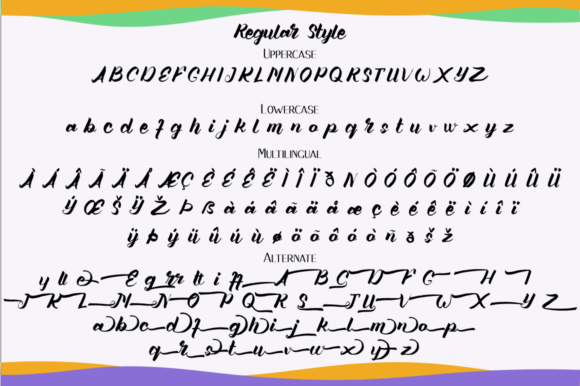 Regular Style
UPPERCASE
A B C D E F G H I J K L M N O P Q R S T U V W X Y Z
LOWERCASE
a b c d e f g h i j k l m n o p q r s t u v w x y z
MULTILINGUAL
À Á Â Ã Ä Å Æ Ç È É Ê Ë Ì Í Î Ï Ð Ñ Ò Ó Ô Õ Ö Ø Ù Ú Û Ü
Ý Œ Š Ÿ Ž Þ ß à á â ã ä å æ ç è é ê ë ì í î ï
ÿ þ ý ü û ú ù ø ö õ ô ó ò ñ ð š ž
ALTERNATE
A B C D E F G H I
J K L M N O P Q R S T U V W X Y Z
a b c d f g h i j k l m n o p
q r s t u v w x y z